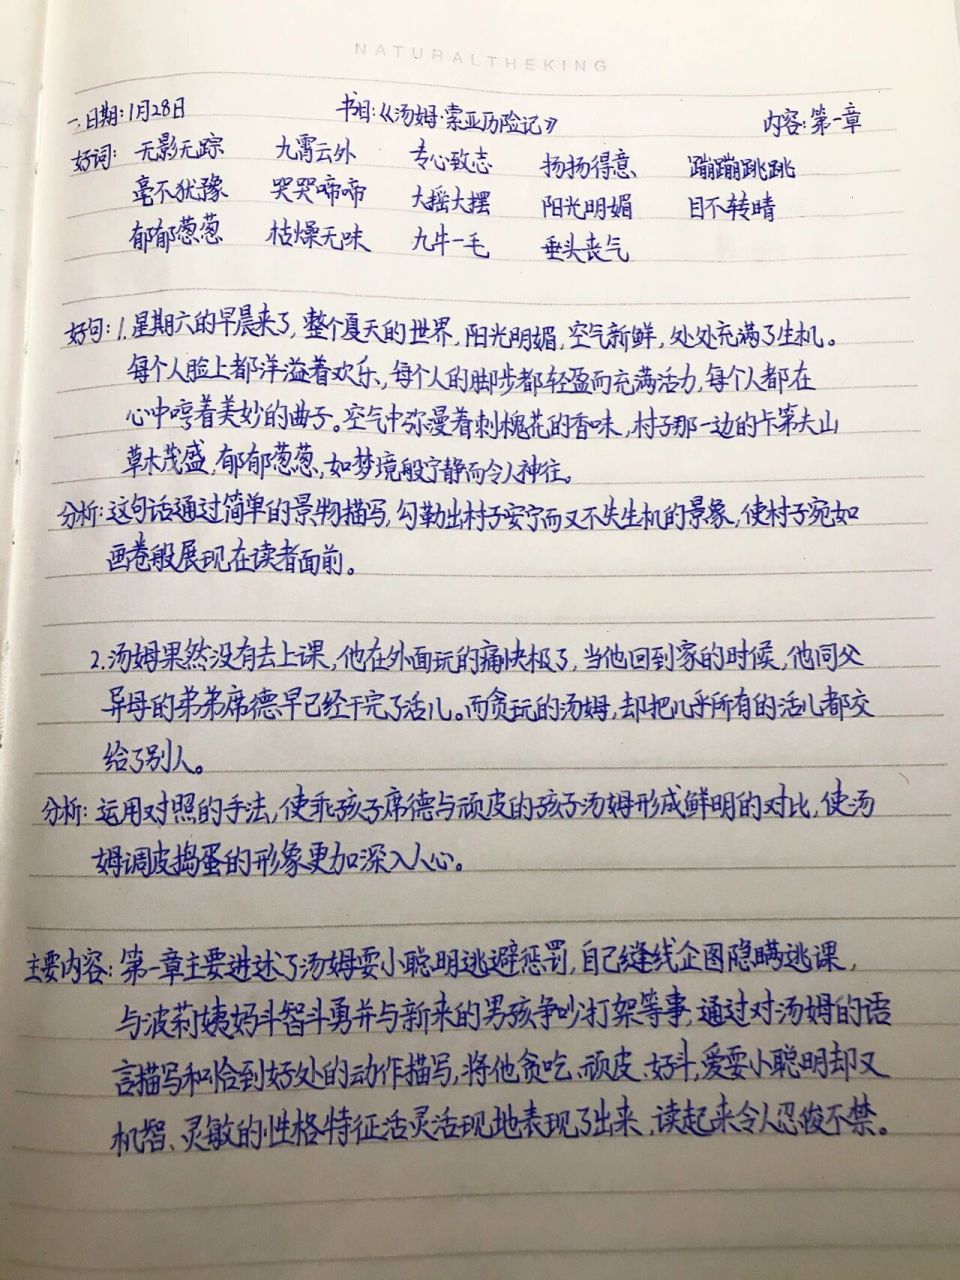 NATURALTHEKING
一.日期:1月28日 书目:《汤姆·索亚历险记》 内容:第一章
好词: 无影无踪 九霄云外 专心致志 扬扬得意 蹦蹦跳跳
毫不犹豫 哭哭啼啼 大摇大摆 阳光明媚 目不转睛
郁郁葱葱 枯燥无味 九牛一毛 垂头丧气
好句:1.星期六的早晨来了,整个夏天的世界,阳光明媚,空气新鲜,处处充满了生机。
每个人脸上都洋溢着欢乐,每个人的脚步都轻盈而充满活力,每个人都在
心中哼着美妙的曲子。空气中弥漫着刺槐花的香味,村子那一边的卡第夫山
草木茂盛,郁郁葱葱,如梦境般宁静而令人神往。
分析:这句话通过简单的景物描写,勾勒出村子安宁而又不失生机的景象,使村子宛如
画卷般展现在读者面前。
2.汤姆果然没有去上课,他在外面玩的痛快极了,当他回到家的时候,他同父
异母的弟弟席德早已经干完了活儿。而贪玩的汤姆,却把几乎所有的活儿都交
给了别人。
分析:运用对照的手法,使乖孩子席德与顽皮的孩子汤姆形成鲜明的对比,使汤
姆调皮捣蛋的形象更加深入人心。
主要内容:第一章主要讲述了汤姆耍小聪明逃避惩罚,自己缝线企图隐瞒逃课,
与波莉姨妈斗智斗勇并与新来的男孩争吵打架等事,通过对汤姆的语
言描写和恰到好处的动作描写,将他贪吃、顽皮、好斗,爱耍小聪明却又
机智、灵敏的性格特征活灵活现地表现了出来,读起来令人忍俊不禁。